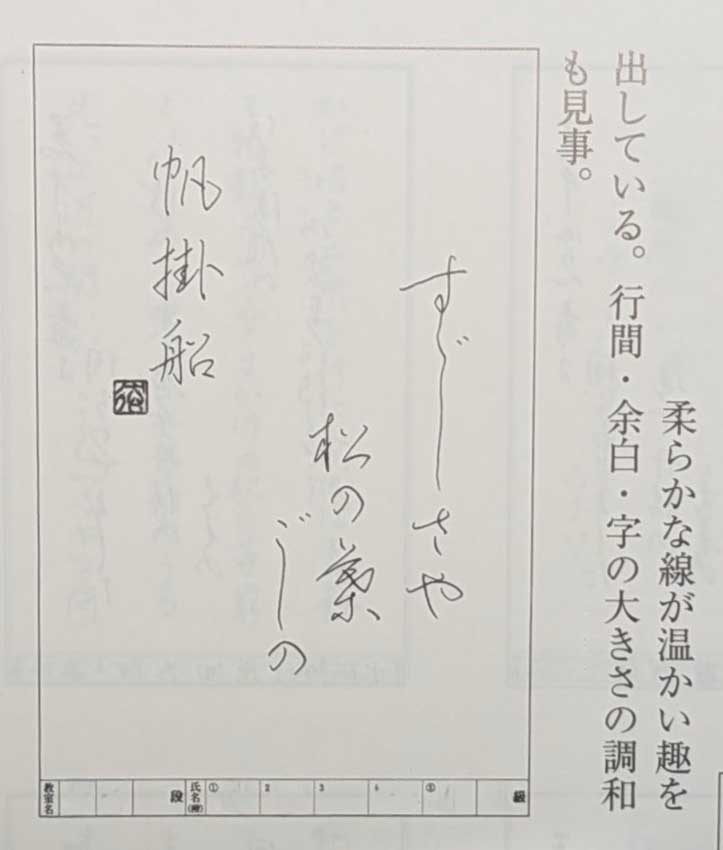 柔らかな線が温かい趣を
出している。行間・余白・字の大きさの調和
も見事。
すゞしさや
松の葉
ごしの
帆掛船
級
⑤
4
3
2
①
氏名(稱)
段
教室名